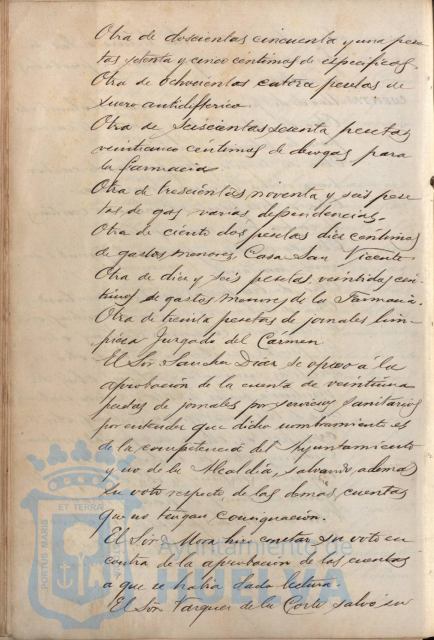 Otra de doscientas cincuenta y una pese
tas setenta y cinco centimos de especificos.
Otra de Ochocientas catorce pesetas de
suero antidifterico.
Otra de Seiscientas sesenta pesetas
veinticinco centimos de drogas para
la farmacia
Otra de trescientas noventa y seis pese
tas de gas varias dependencias.
Otra de ciento dos pesetas diez centimos
de gastos menores, Casa San Vicente
Otra de diez y seis pesetas, veintidos cen
timos de gastos menores de la Farmacia.
Otra de treinta pesetas de jornales lim-
pieza Juzgado del Cármen
El Sor. Sanchez Diaz se opuso á la
aprobación de la cuenta de veintiuna
pesetas de jornales por servicios sanitarios
por entender que dicho nombramiento es
de la competencia del Ayuntamiento
y no de la Alcaldía, salvando, ademas
su voto respecto de las demas, cuentas
que no tengan consignación.
El Sor. Mora hizo constar su voto en
contra de la aprobacion de las cuentas
a que se habia dado lectura.
El Sor. Vazquez de la Corte salvó su
ET TERRA
PORTUS MARIS
Ayuntamiento de
HUELVA